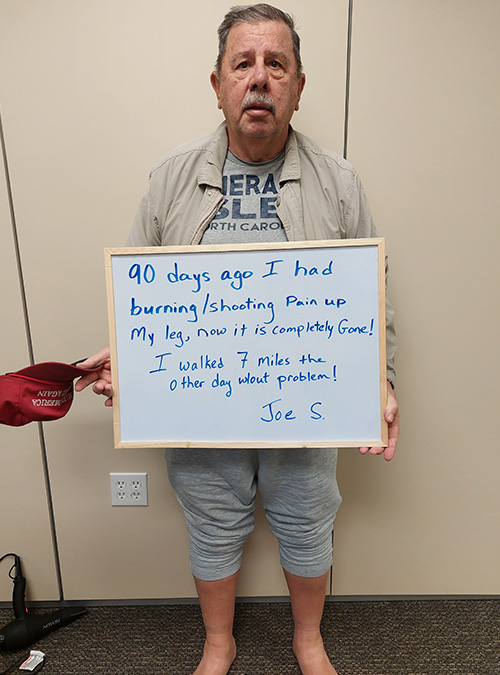 NERA
BLE
RTH CAROL
90 days ago I had
burning/shooting Pain up
My leg, now it is completely Gone!
I walked 7 miles the
other day w/out problem!
Joe S.
AMERICA
AGAIN
REVLON